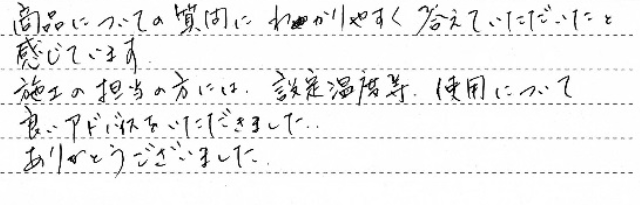 商品についての質問にわかりやすく答えていただいたと
感じています.
施工の担当の方には、設定温度等、使用について
良いアドバイスをいただきました..
ありがとうございました.